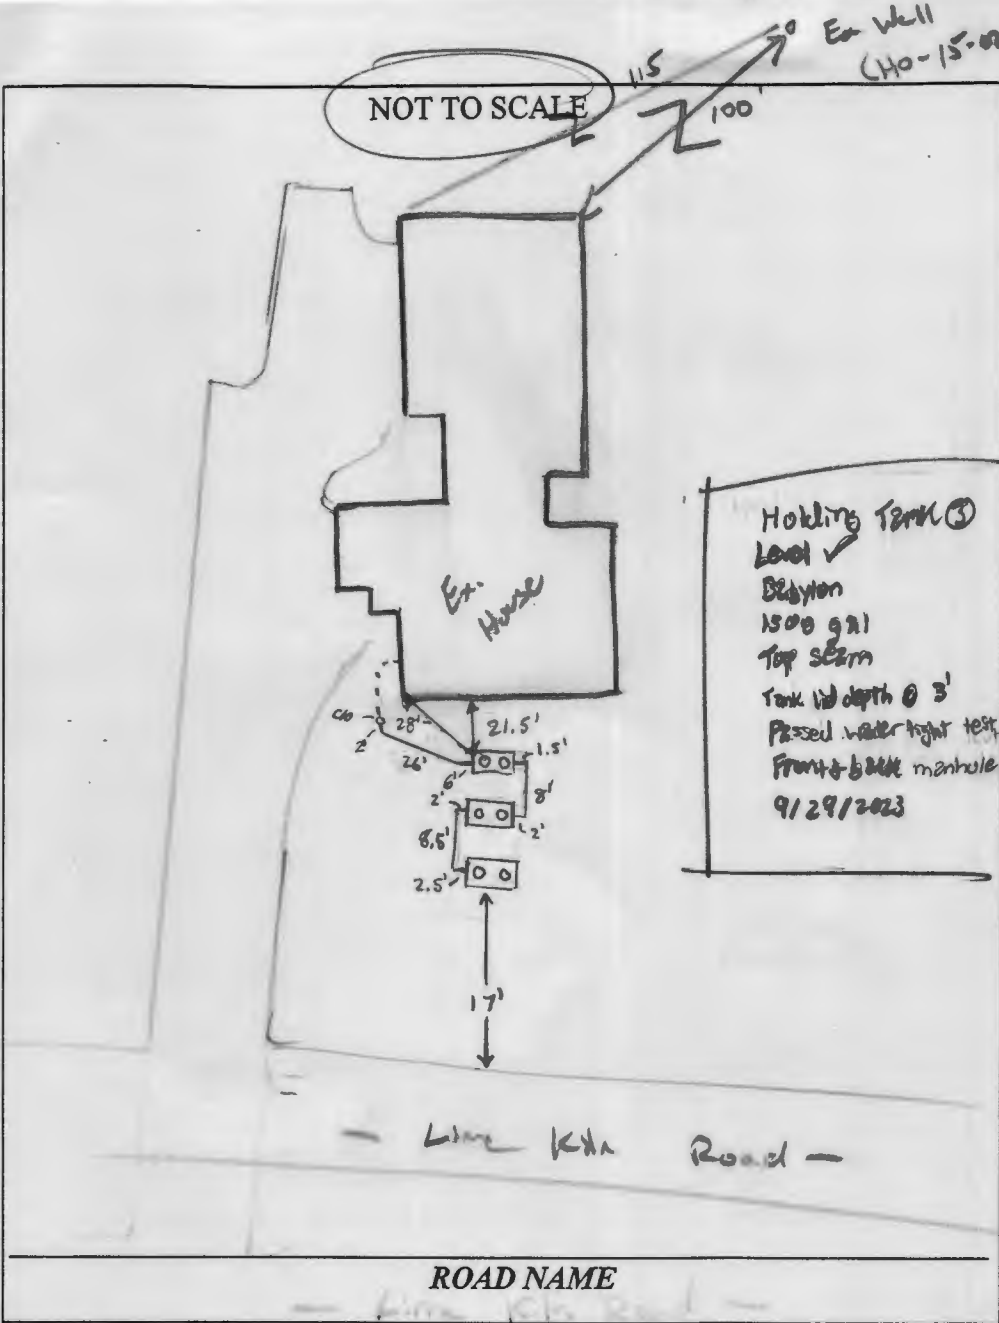 Ex Well
(HO-15-
NOT TO SCALE
115
100'
Ex.
House
Holding Tank ③
Level ✓
Babylon
1500 gal
Top seam
Tank lid depth @ 3'
Passed water tight test
Front & back manhole
9/29/2023
c/o
2'
28'
26'
21.5'
6'
1.5'
8'
2'
2'
8.5'
2.5'
17'
- Lime Kiln Road -
ROAD NAME
- Lime Kiln Road -